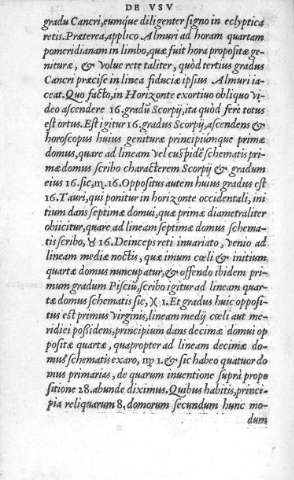 DE VSV
gradu Cancri, eumque diligenter signo in ecliptica
retis. Præterea, applico Almuri ad horam quartam
pomeridianam in limbo, quæ fuit hora propositæ ge-
nituræ, & volue rete taliter, quòd tertius gradus
Cancri præcise in linea fiduciæ ipsius Almuri ia-
ceat. Quo facto, in Horizonte exortiuo obliquo vi-
deo ascendere 16. gradũ Scorpij, ita quòd ferè totus
est ortus. Est igitur 16. gradus Scorpij, ascendens &
horoscopus huius genituræ principiumque primæ
domus, quare ad lineam vel cuspidẽ schematis pri-
mæ domus scribo characterem Scorpij & gradum
eius 16. sic, ♏ 16. Oppositus autem huius gradus est
16. Tauri, qui ponitur in horizonte occidentali, ini-
tium dans septimæ domui, quæ primæ diametraliter
obijcitur, quare ad lineam septimæ domus schema-
tis scribo, ♉ 16. Deinceps reti inuariato, venio ad
lineam mediæ noctis, quæ imum cœli & initium
quartæ domus nuncupatur, & offendo ibidem pri-
mum gradum Pisciũ, scribo igitur ad lineam quar-
tæ domus schematis sic, ♓ 1. Et gradus huic opposi-
tus est primus Virginis, lineam medij cœli aut me-
ridiei possidens, principium dans decimæ domui op
positæ quartæ, quapropter ad lineam decimæ do-
mus schematis exaro, ♍ 1. & sic habeo quatuor do
mus primarias, de quarum inuentione suprà propo
sitione 28. abunde diximus. Quibus habitis, princi-
pia reliquarum 8. domorum secundum hunc mo-
dum